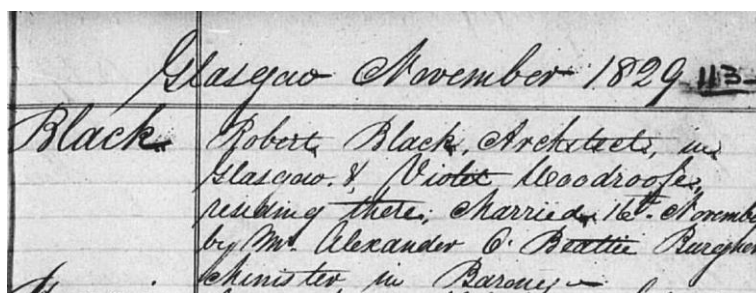 Glasgow November 1829 113
Black Robert Black, Architect, in
Glasgow. & Violet Woodroofe,
residing there; Married 16th November
by Mr. Alexander O. Beattie Burgher
Minister in Barony